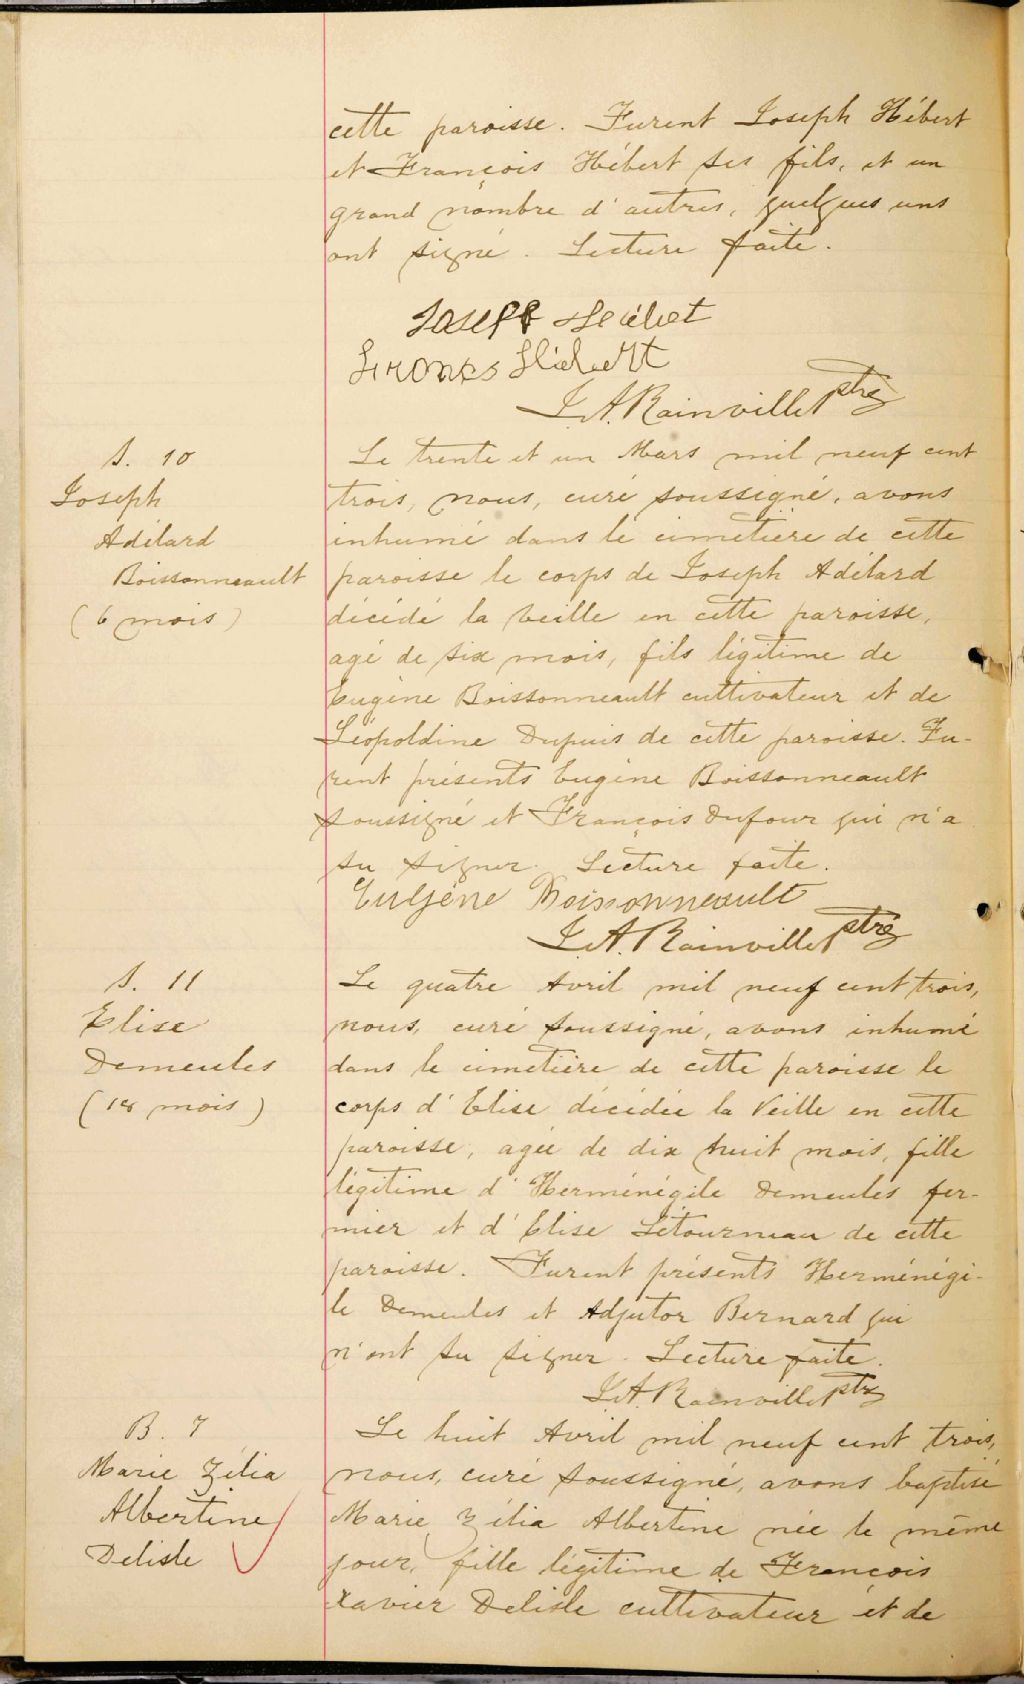 cette paroisse. Furent Joseph Hébert
et François Hébert ses fils, et un
grand nombre d'autres, quelques uns
ont signé. Lecture faite.
Joseph Heébet
J. A. Rainville Ptre
S. 10
Joseph
Adélard
Boissonneault
(6 mois)
Le trente et un Mars mil neuf cent
trois, nous, curé soussigné, avons
inhumé dans le cimetière de cette
paroisse le corps de Joseph Adélard
décédé la veille en cette paroisse,
agé de six mois, fils légitime de
Eugène Boissonneault cultivateur et de
Léopoldine Dupuis de cette paroisse. Fu-
rent présents Eugène Boissonneault
soussigné et François Dufour qui n'a
su signer. Lecture faite.
Eulgène Boissonneault
J. A. Rainville Ptre
S. 11
Elise
Demeules
(18 mois)
Le quatre Avril mil neuf cent trois,
nous, curé soussigné, avons inhumé
dans le cimetière de cette paroisse le
corps d'Elise décédée la Veille en cette
paroisse, agée de dix huit mois, fille
légitime d'Herménégile Demeules fer-
mier et d'Elise Létourneau de cette
paroisse. Furent présents Herménégi-
le Demeules et Adjutor Bernard qui
n'ont su signer. Lecture faite.
J. A. Rainville Ptre
B. 7
Marie Zélia
Albertine
Delisle
Le huit Avril mil neuf cent trois,
nous, curé soussigné, avons baptisé
Marie Zélia Albertine née le même
jour, fille légitime de François
Xavier Delisle cultivateur et de